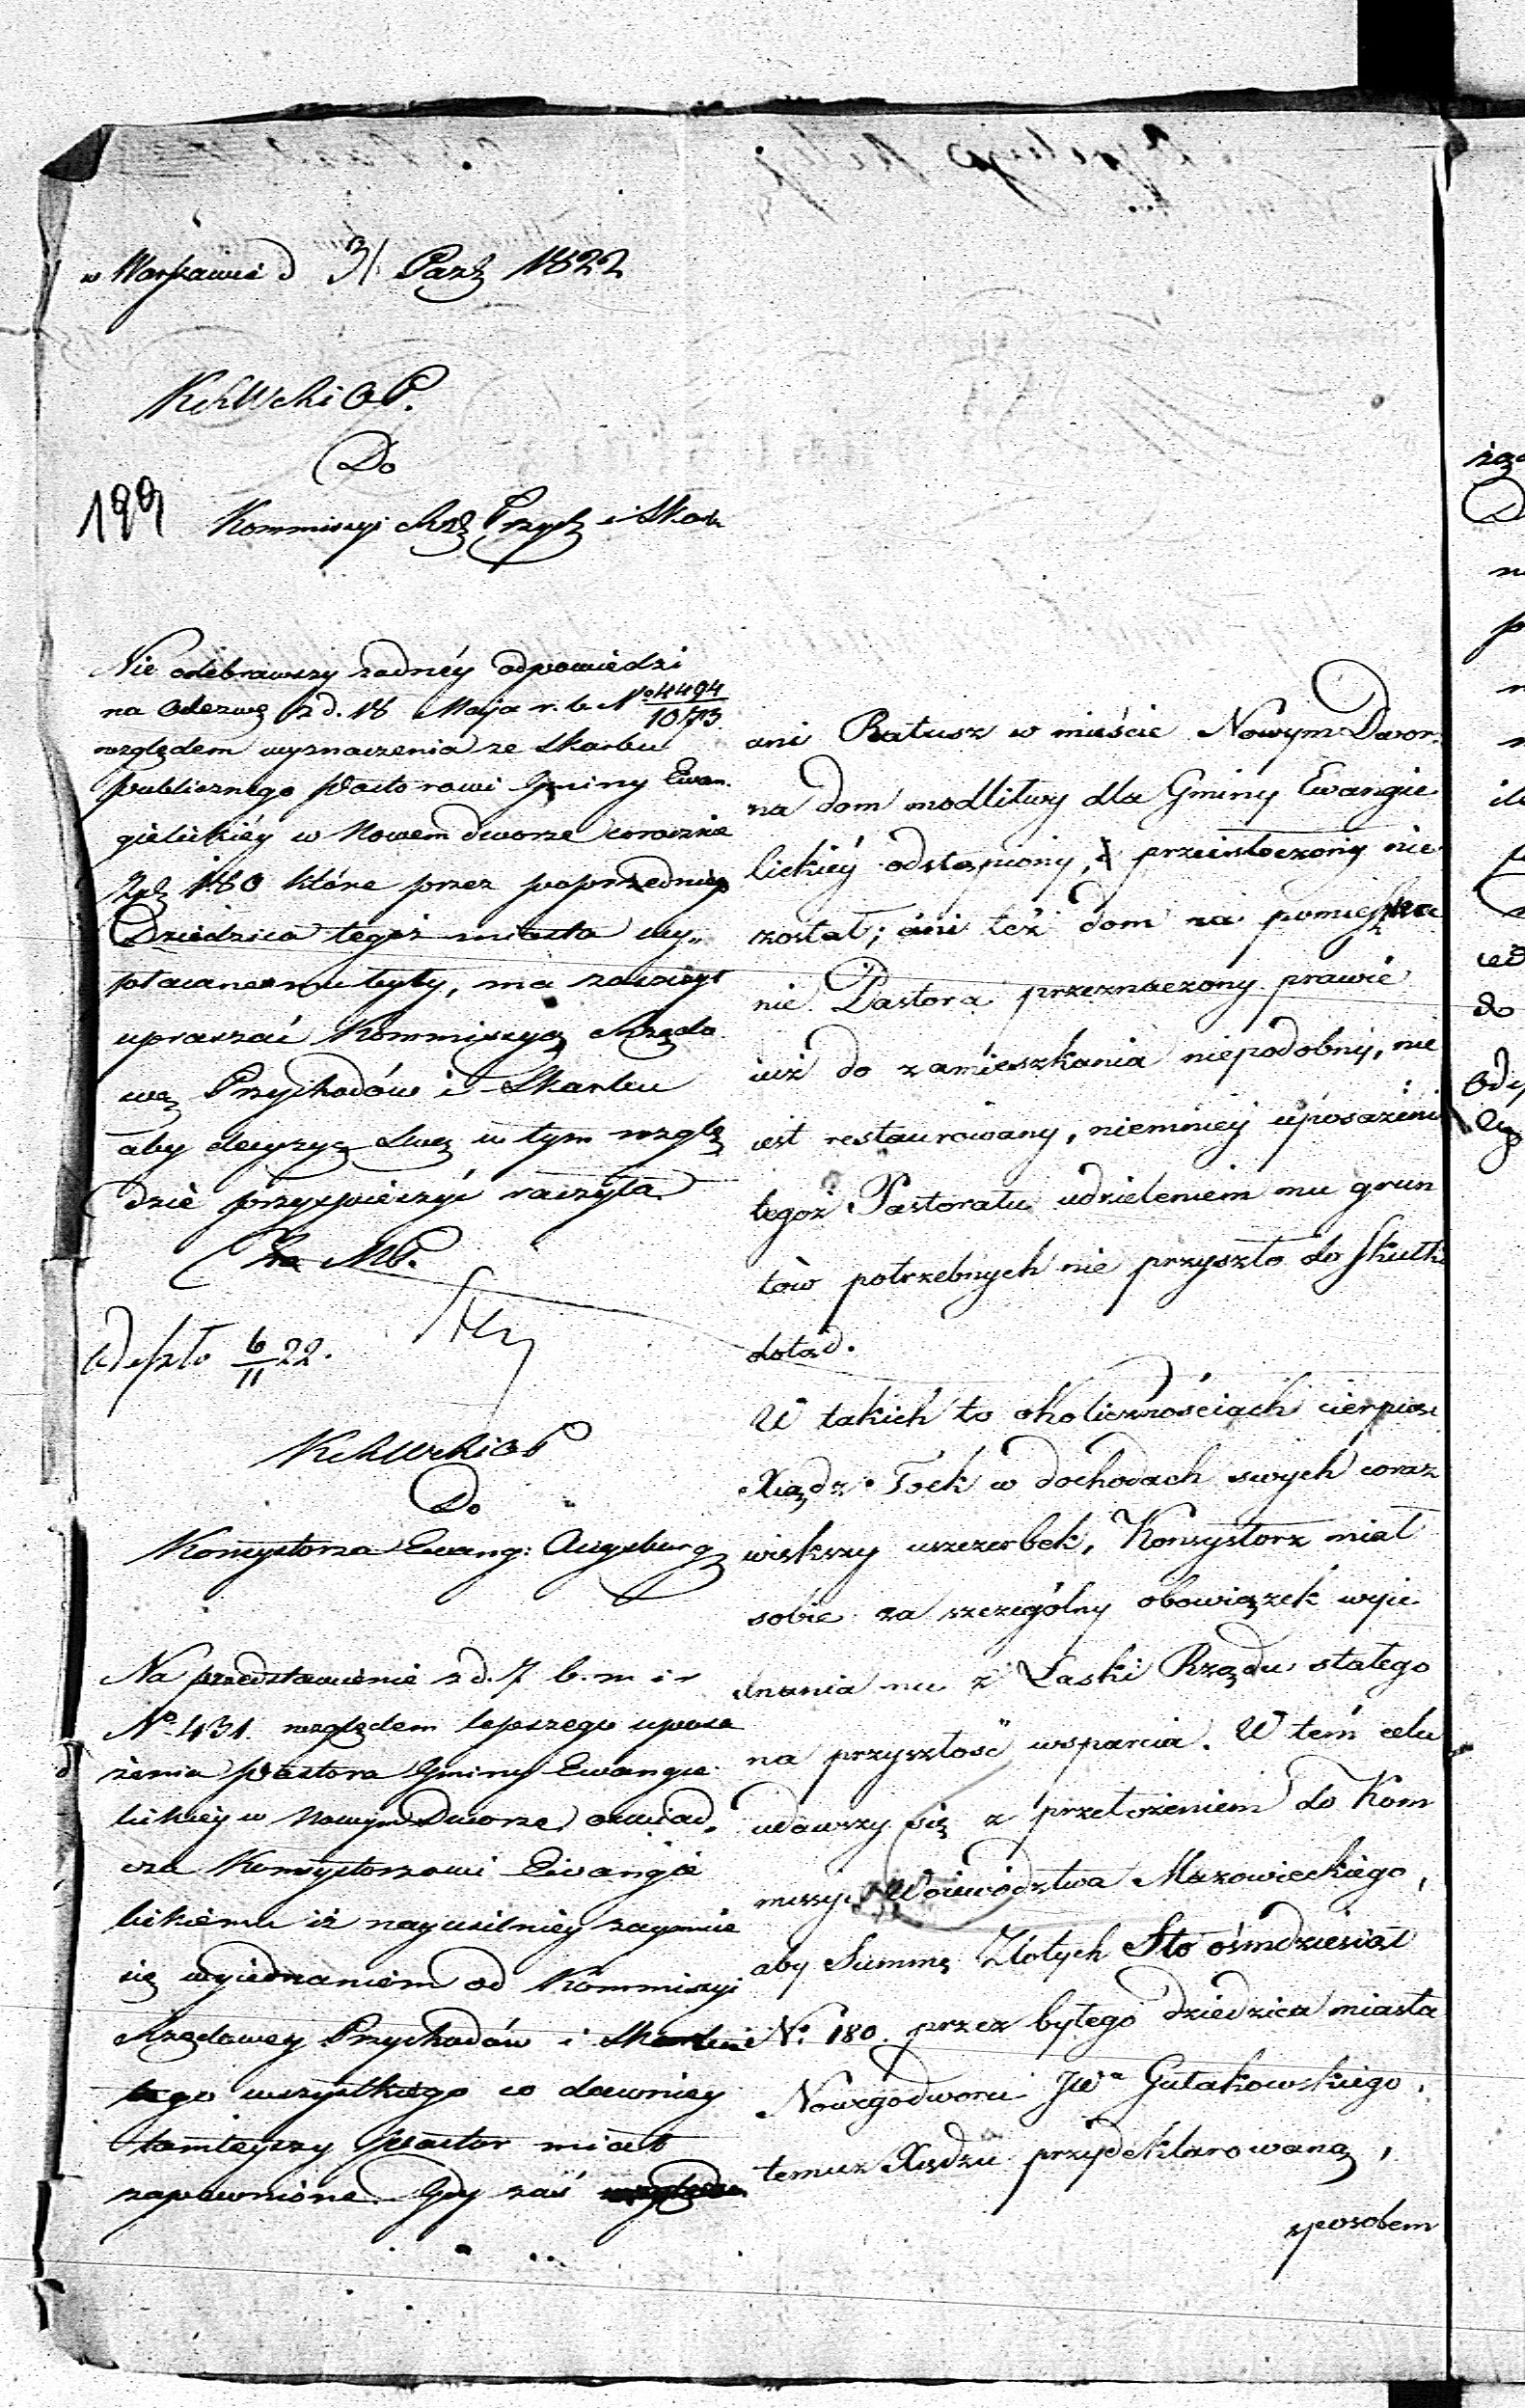 w Warszawie d 31 Paźd 1822
KRWR i OP.
Do
Kommissyi Rząd Przych i Skarb
199
Nie odebrawszy żadnéy odpowiedzi
na Odezwę z d. 18 Maja r. b. No 4494/1073
względem wyznaczenia ze Skarbu
publicznego Pastorowi Gminy Ewan
gielickiéy w Nowem dworze corocznie
Złp 180 które przez poprzedniego
Dziedzica tegoż miasta wy„
płacane mu były, ma zaszczyt
upraszać Kommissyą Rządo
wą Przychodów i Skarbu
aby decyzyą swą w tym wzglę
dzie przyspieszyć raczyła.
Za MP.
Odeszło 6/11 22.
KRWR i OP
Do
Konsystorza Ewang: Augsburg
Na przedstawienie z d. 7 b. m i r
No 431. względem lepszego uposa
żenia Pastora Gminy Ewangie
lickiey w Nowym Dworze, oświad„
cza Konsystorzowi Ewangie
lickiemu iż nayusilniey zaymie
się wyiednaniem od Kommissyi
Rządowey Przychodów i Skarbu
tego wszystkiego co dawniey
tamteyszy Pastor miał
zapewnione. Gdy zaś
ani Ratusz w mieście Nowym Dwor:
na dom modlitwy dla Gminy Ewangie
lickiéy odstąpiony, przeistoczony nie
został; ani też dom na pomieszka
nie Pastora przeznaczony prawie
iuż do zamieszkania niepodobny, nie
iest restaurowany, niemniey uposażenie
tegoż Pastoratu udzieleniem mu grun
tów potrzebnych nie przyszło do skutku
dotąd.
W takich to okolicznościach cierpiąc
Xiądz Tock w dochodach swych coraz
większy uszczerbek, Konsystorz miał
sobie za szczególny obowiązek wyie
dnania mu z Łaski Rządu stałego
na przyszłość wsparcia. W tém celu
udawszy się z przełożeniem do Kom
missyi Woiewództwa Mazowieckiego,
aby Summę Złotych Sto ośmdziesiąt
No. 180. przez byłego dziedzica miasta
Nowegodworu JWa Gutakowskiego,
temuż Xiędzu przydeklarowaną,
sposobem